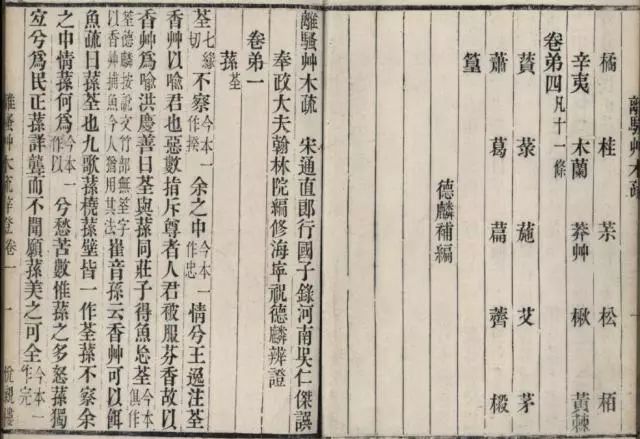 離騷艸木疏
橘 桂 茮 松 栢
辛夷 木蘭 莽艸 楸 黃棘
卷弟四凡十一條
薋 菉 葹 艾 茅
蕭 葛 萹 薺 樧
篁
德麟補編
離騷艸木疏 宋通直郎行國子錄河南吳仁傑譔
奉政大夫翰林院編修海寧祝德麟辨證
卷弟一
蓀荃
荃七緣切不察今本一作揆余之中今本一作忠情兮王逸注荃
香艸以喻君也惡數指斥尊者人君被服芬香故以
香艸爲喻洪慶善曰荃與蓀同莊子得魚忘荃今本俱作
筌德麟按說文竹部無筌字以香艸捕魚今人猶用其法崔音孫云香艸可以餌
魚疏曰蓀荃也九歌蓀橈蓀壁皆一作荃蓀不察余
之中情蓀何爲今本一作以兮愁苦數惟蓀之多怒蓀獨
宜兮爲民正蓀詳聾而不聞願蓀美之可全今本一作完
離騷艸木疏辨證卷一 一 悅親樓